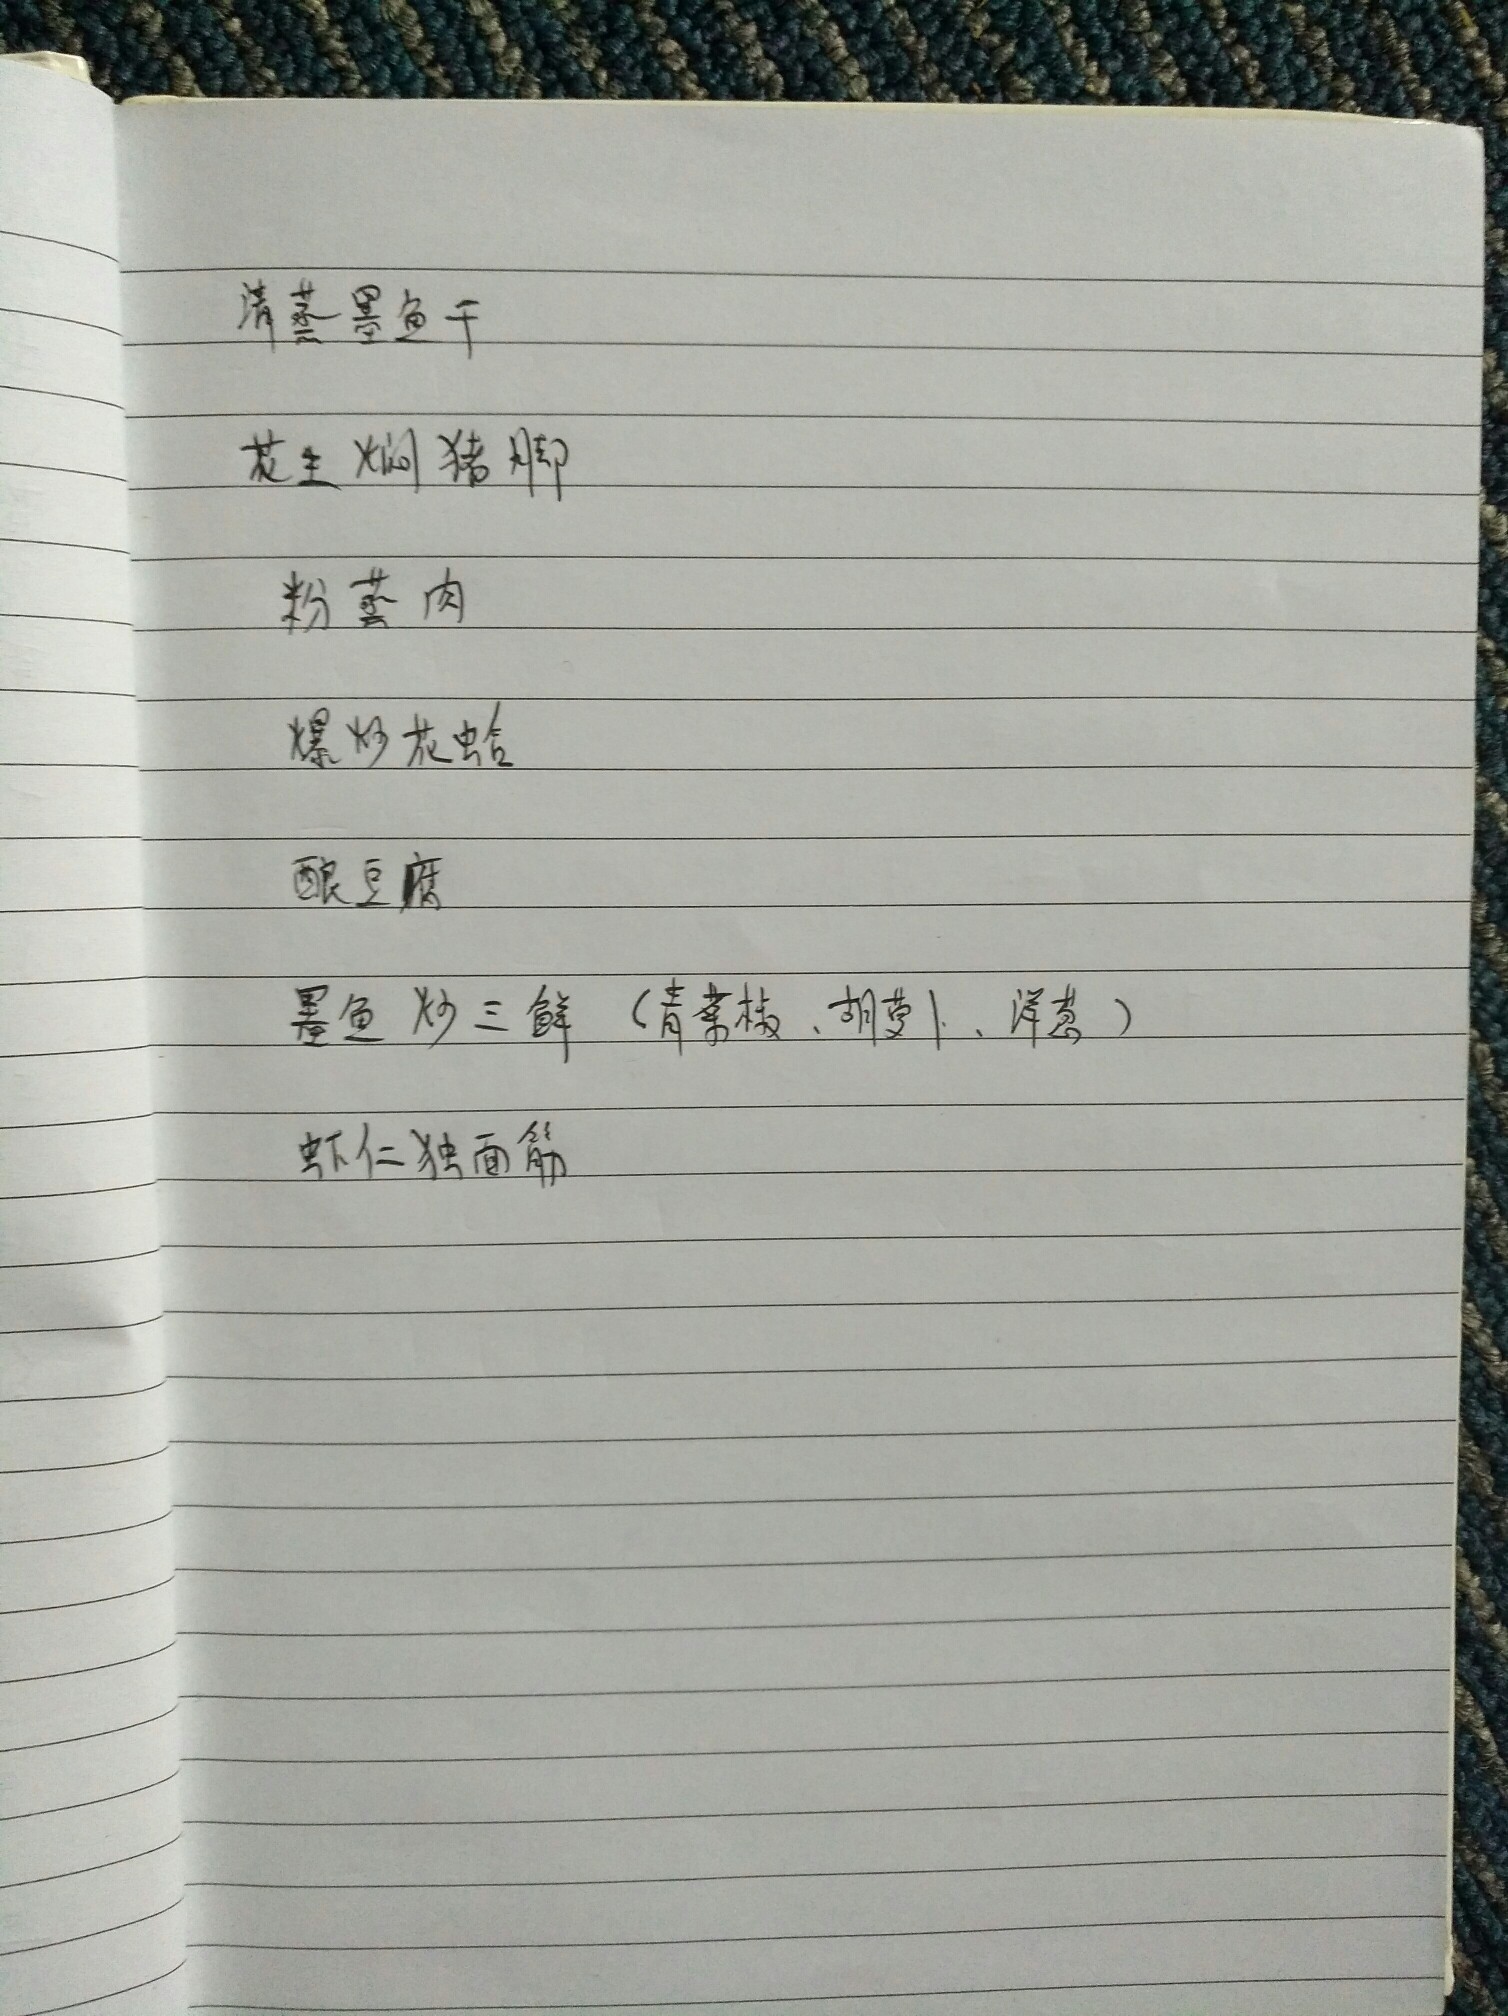 清蒸墨鱼干
花生焖猪脚
粉蒸肉
爆炒花蛤
酿豆腐
墨鱼炒三鲜（青菜椒、胡萝卜、洋葱）
虾仁独面筋